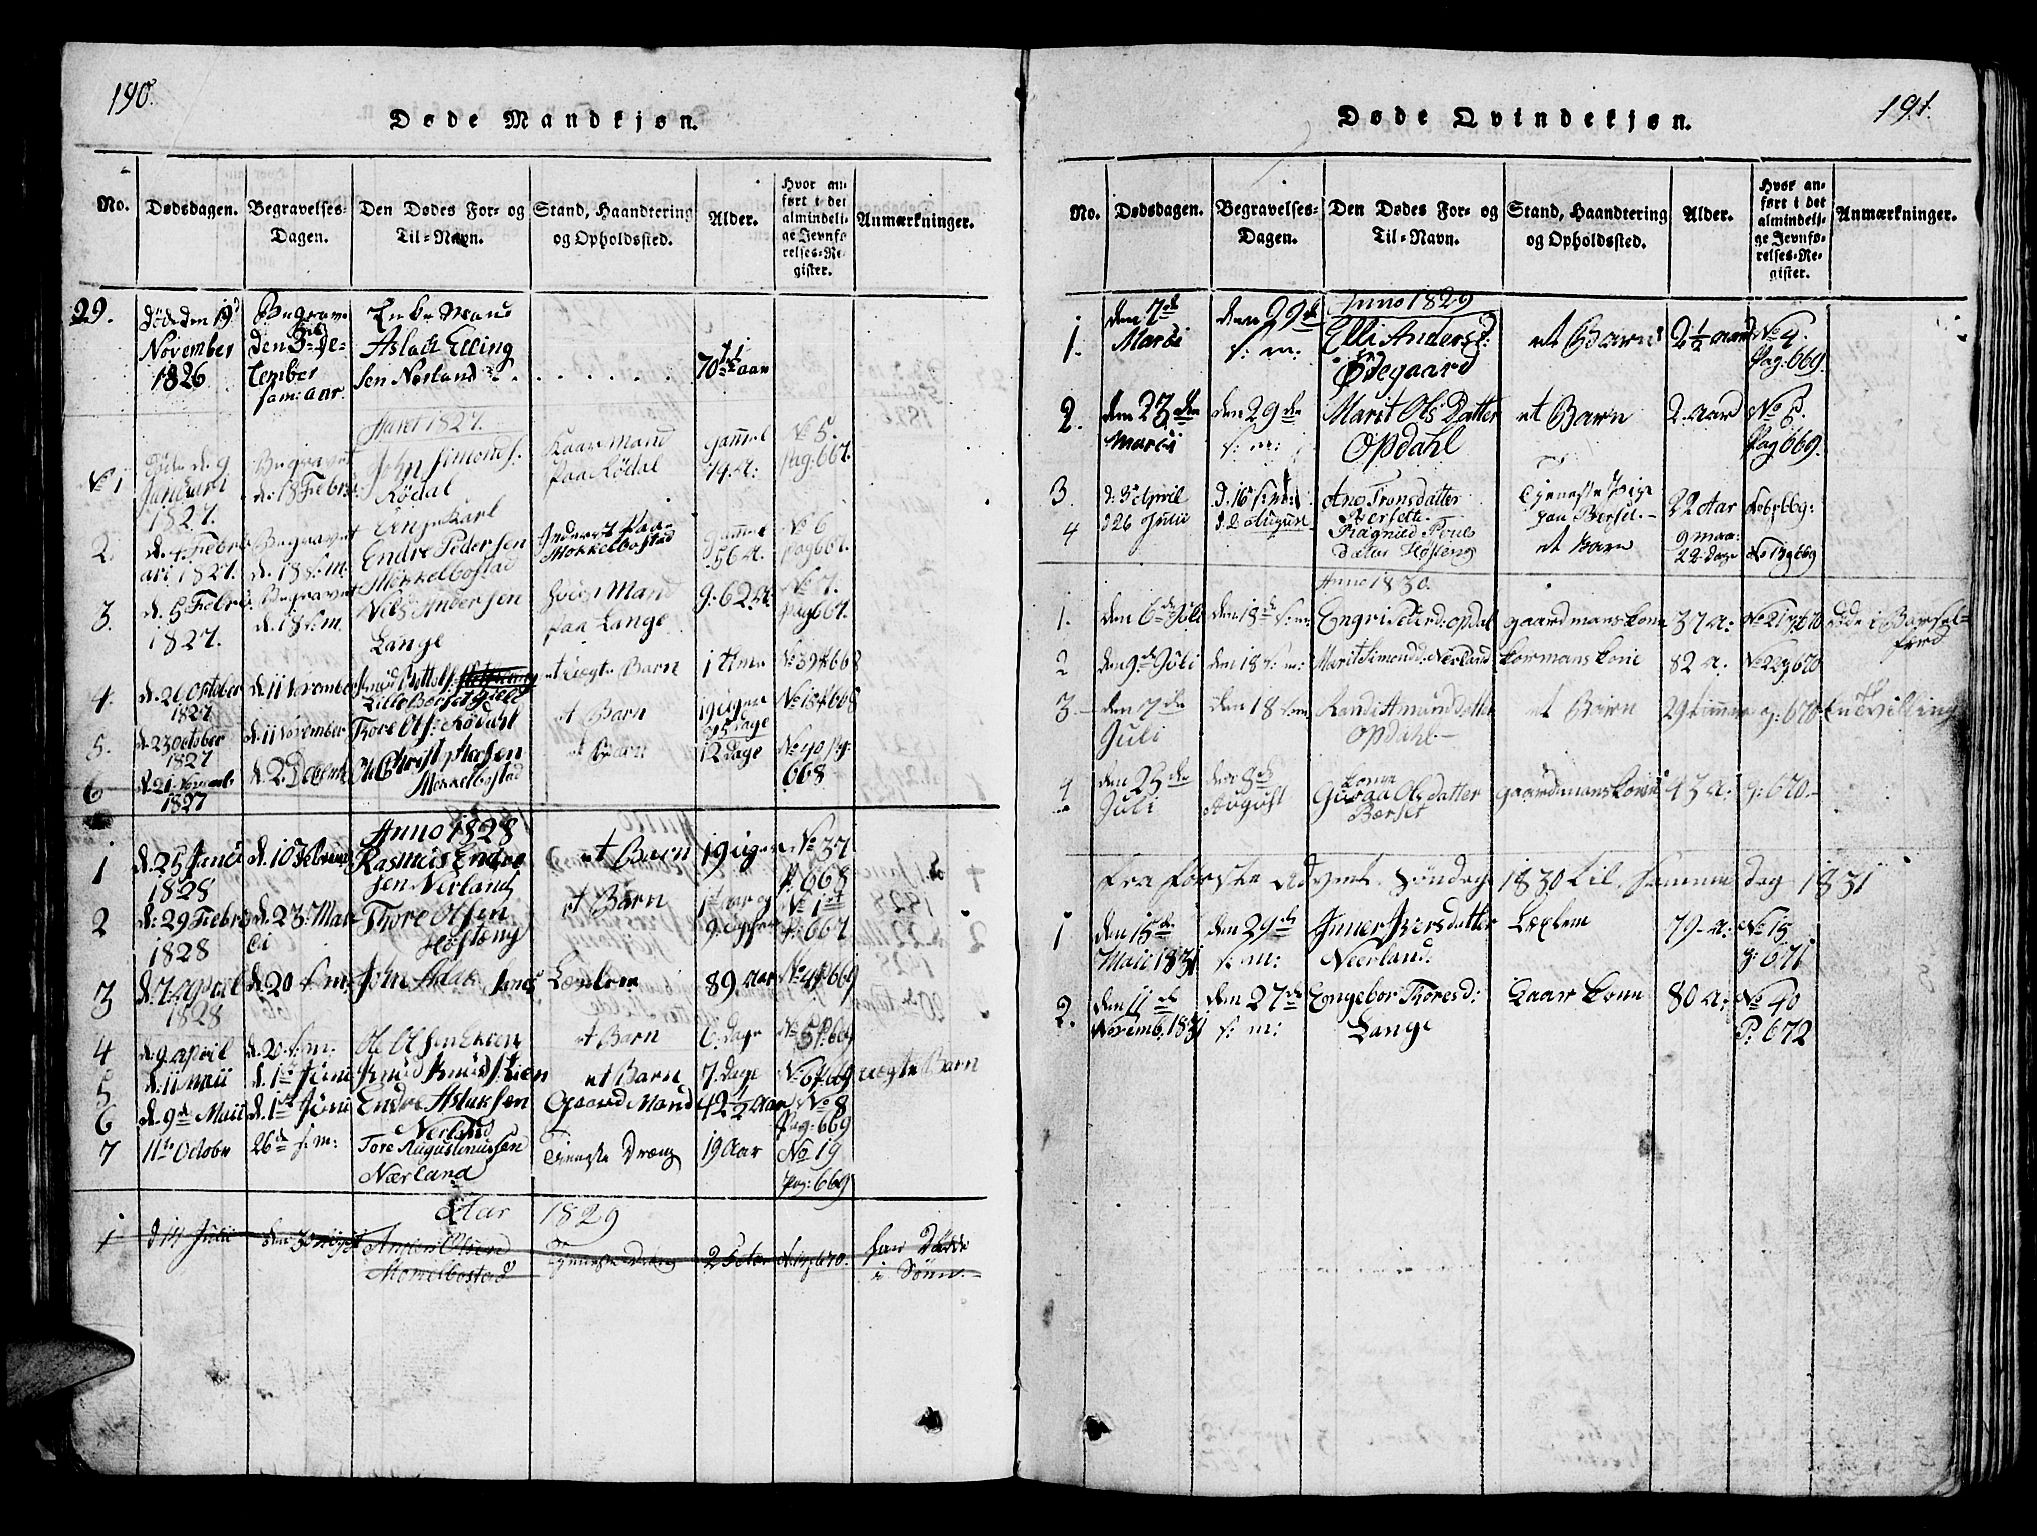 190.
Døde Mandkjøn.
No. Dødsdagen. Begravelses-Dagen. Den Dødes For- og Til-Navn. Stand, Haandtering og Opholdssted. Alder. Hvor anført i det almindelige Jevnførelses-Register. Anmærkninger.
29. Døde den 19d November 1826 den 3 December Enke Mand Aslack Ellingsen Nerland 70 aar
Aaret 1827.
No 1 Døde d. 9 Januari 1827. Begravet d. 18 Febru John Simonds. Rødal Kaar Mand paa Rødal gammel 74. A: No 5. Pag: 667.
2. d. 4 Februari 1827. Begravet d. 18 s. m. Ungekarl Endre Pedersen Mekkelbostad Inderst paa Mokkelbostad gammel 56 A. No 6 pag 667.
3. d. 5 Febru 1827. Begravet d. 18 s. m. Niels Andersen Lange Huus Mand paa Lange g. 62 A. No 7. pag 667.
4. d. 26 October 1827 d. 11 November Lille Børset Field et uægte Barn No 39 668
5. d. 23 October 1827 d. 11 November Thore Ols: Rødahl et Barn 19 uger No 18 668
6 d. 21 Novemb 1827 d. 2. Decemb Mekkelbostad et Barn 12 Dage No 40 pg: 668
Anno 1828
1 d. 25 Janu 1828 d. 10 Februar Rasmus Endresen Nerland et Barn 19 uger No 37 p. 668
2 d: 29 Febru 1828 d. 23. Martii Thore Olsen Høsteng et Barn 1st aar og No 1st p: 667
3 d. 7 April 1828 d. 20 s. m. John Aslak Jens Lænlem 89 aar No 4 p 669
4 d. 9 April d. 20. s. m. Ole Olsen et Barn 6. Dage No 5 p. 669
5 d. 11 Maii d. 1st Juni Knud Knuds: Lien et Barn 7. Dage No 6 p 669 uægte Barn
6 d. 9d Maii d. 1st Juni Endre Aslaksen Nerland Gaard Mand 42½ Aar No 8 Pag: 669
7 11te October 26de s: m: Tore Augustinussen Nærland Tieneste Dreng 19 Aar No 19 Pag: 669
Aar 1829
1 d 14 Julii Anders Olsen Mekelbostad Tieneste Dreng 25 Aar 670. i Søen
191.
Døde Qvindekjøn.
No. Dødsdagen. Begravelses-Dagen. Den Dødes For- og Til-Navn. Stand, Haandtering og Opholdssted. Alder. Hvor anført i det almindelige Jevnførelses-Register. Anmærkninger.
Anno 1829
1. den 7de Marti den 29de s: m: Elli Andersd: Ødegaard et Barn 2½ aar No 4. Pag: 669.
2. den 23den Martii den 29de s: m: Marit Ols Datter Opdahl et Barn 2 aar No 5. Pag 669.
3 d: 3 April d. 16 s. m. Ane Tronsdatter Børsette Tieneste Pige paa Børset. 22 Aar
4 d 26 Julii d. 2 August Ragnild Pouls Datter Høsteng et Barn 9 maa: 22 dage No 13 p 669
Anno 1830.
1. den 6de Juli den 18de s: m: Engri Peders: Opdal gaardmans kone 37 A: No 21 p 670 Døde i Barselferd
2 den 9de Juli den 18 s: m: Marit Simonsd: Nerland kormans kone 82 A: No 22 p 670
3 den 7de Juli den 18 s: m: Randi Amundsdatter Opdahl et Barn 29 timmer p: 670 En Tvilling
4 den 25de Juli den 8de August Olsdatter Børset gaardmans kone 43 A: p: 670.
Fra første Advent. Søndag 1830 til samme Dag 1831
1 den 15de Maii 1831 den 29de s: m: Inner Iversdatter Neerland. Leylem 79 A: No 15 p: 671
2. den 11de Novemb. 1831 den 27de s: m: Engebor Thoresd: Lange Kaar kone 80 A: No 40 P: 672